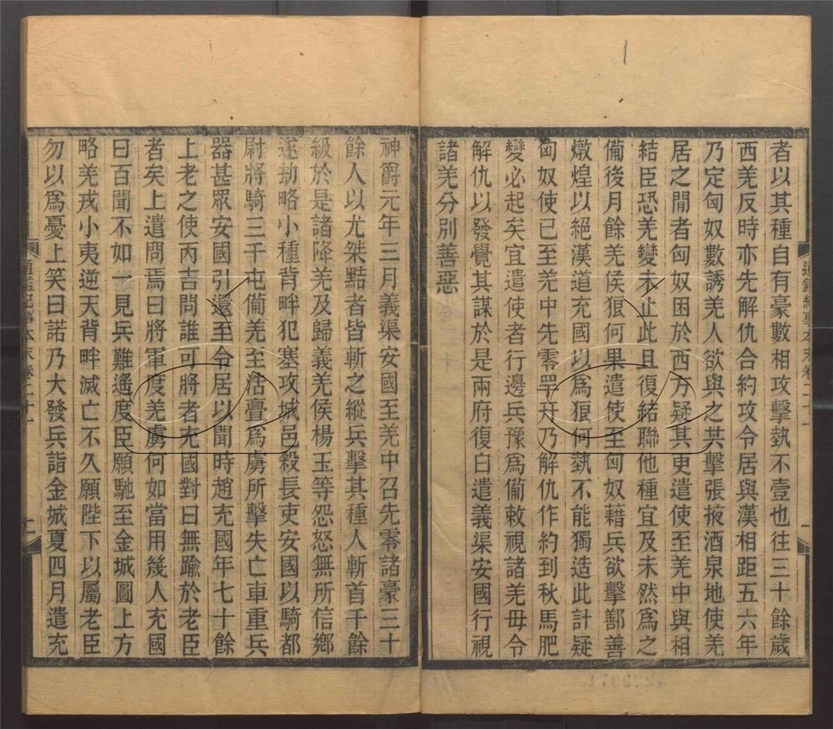 者以其種自有豪數相攻擊埶不壹也往三十餘歲
西羌反時亦先解仇合約攻令居與漢相距五六年
乃定匈奴數誘羌人欲與之共擊張掖酒泉地使羌
居之閒者匈奴困於西方疑其更遣使至羌中與相
結臣恐羌變未止此且復結聯他種宜及未然爲之
備後月餘羌侯狼何果遣使至匈奴藉兵欲擊鄯善
燉煌以絕漢道充國以爲狼何埶不能獨造此計疑
匈奴使已至羌中先零䍐幵乃解仇作約到秋馬肥
變必起矣宜遣使者行邊兵豫爲備敕視諸羌毋令
解仇以發覺其謀於是兩府復白遣義渠安國行視
諸羌分別善惡
神爵元年三月義渠安國至羌中召先零諸豪三十
餘人以尤桀黠者皆斬之縱兵擊其種人斬首千餘
級於是諸降羌及歸義羌侯楊玉等怨怒無所信鄉
遂劫略小種背畔犯塞攻城邑殺長吏安國以騎都
尉將騎三千屯備羌至浩亹爲虜所擊失亡車重兵
器甚眾安國引還至令居以聞時趙充國年七十餘
上老之使丙吉問誰可將者充國對曰無踰於老臣
者矣上遣問焉曰將軍度羌虜何如當用幾人充國
曰百聞不如一見兵難遙度臣願馳至金城圖上方
略羌戎小夷逆天背畔滅亡不久願陛下以屬老臣
勿以爲憂上笑曰諾乃大發兵詣金城夏四月遣充
通鑑紀事本末卷二十一